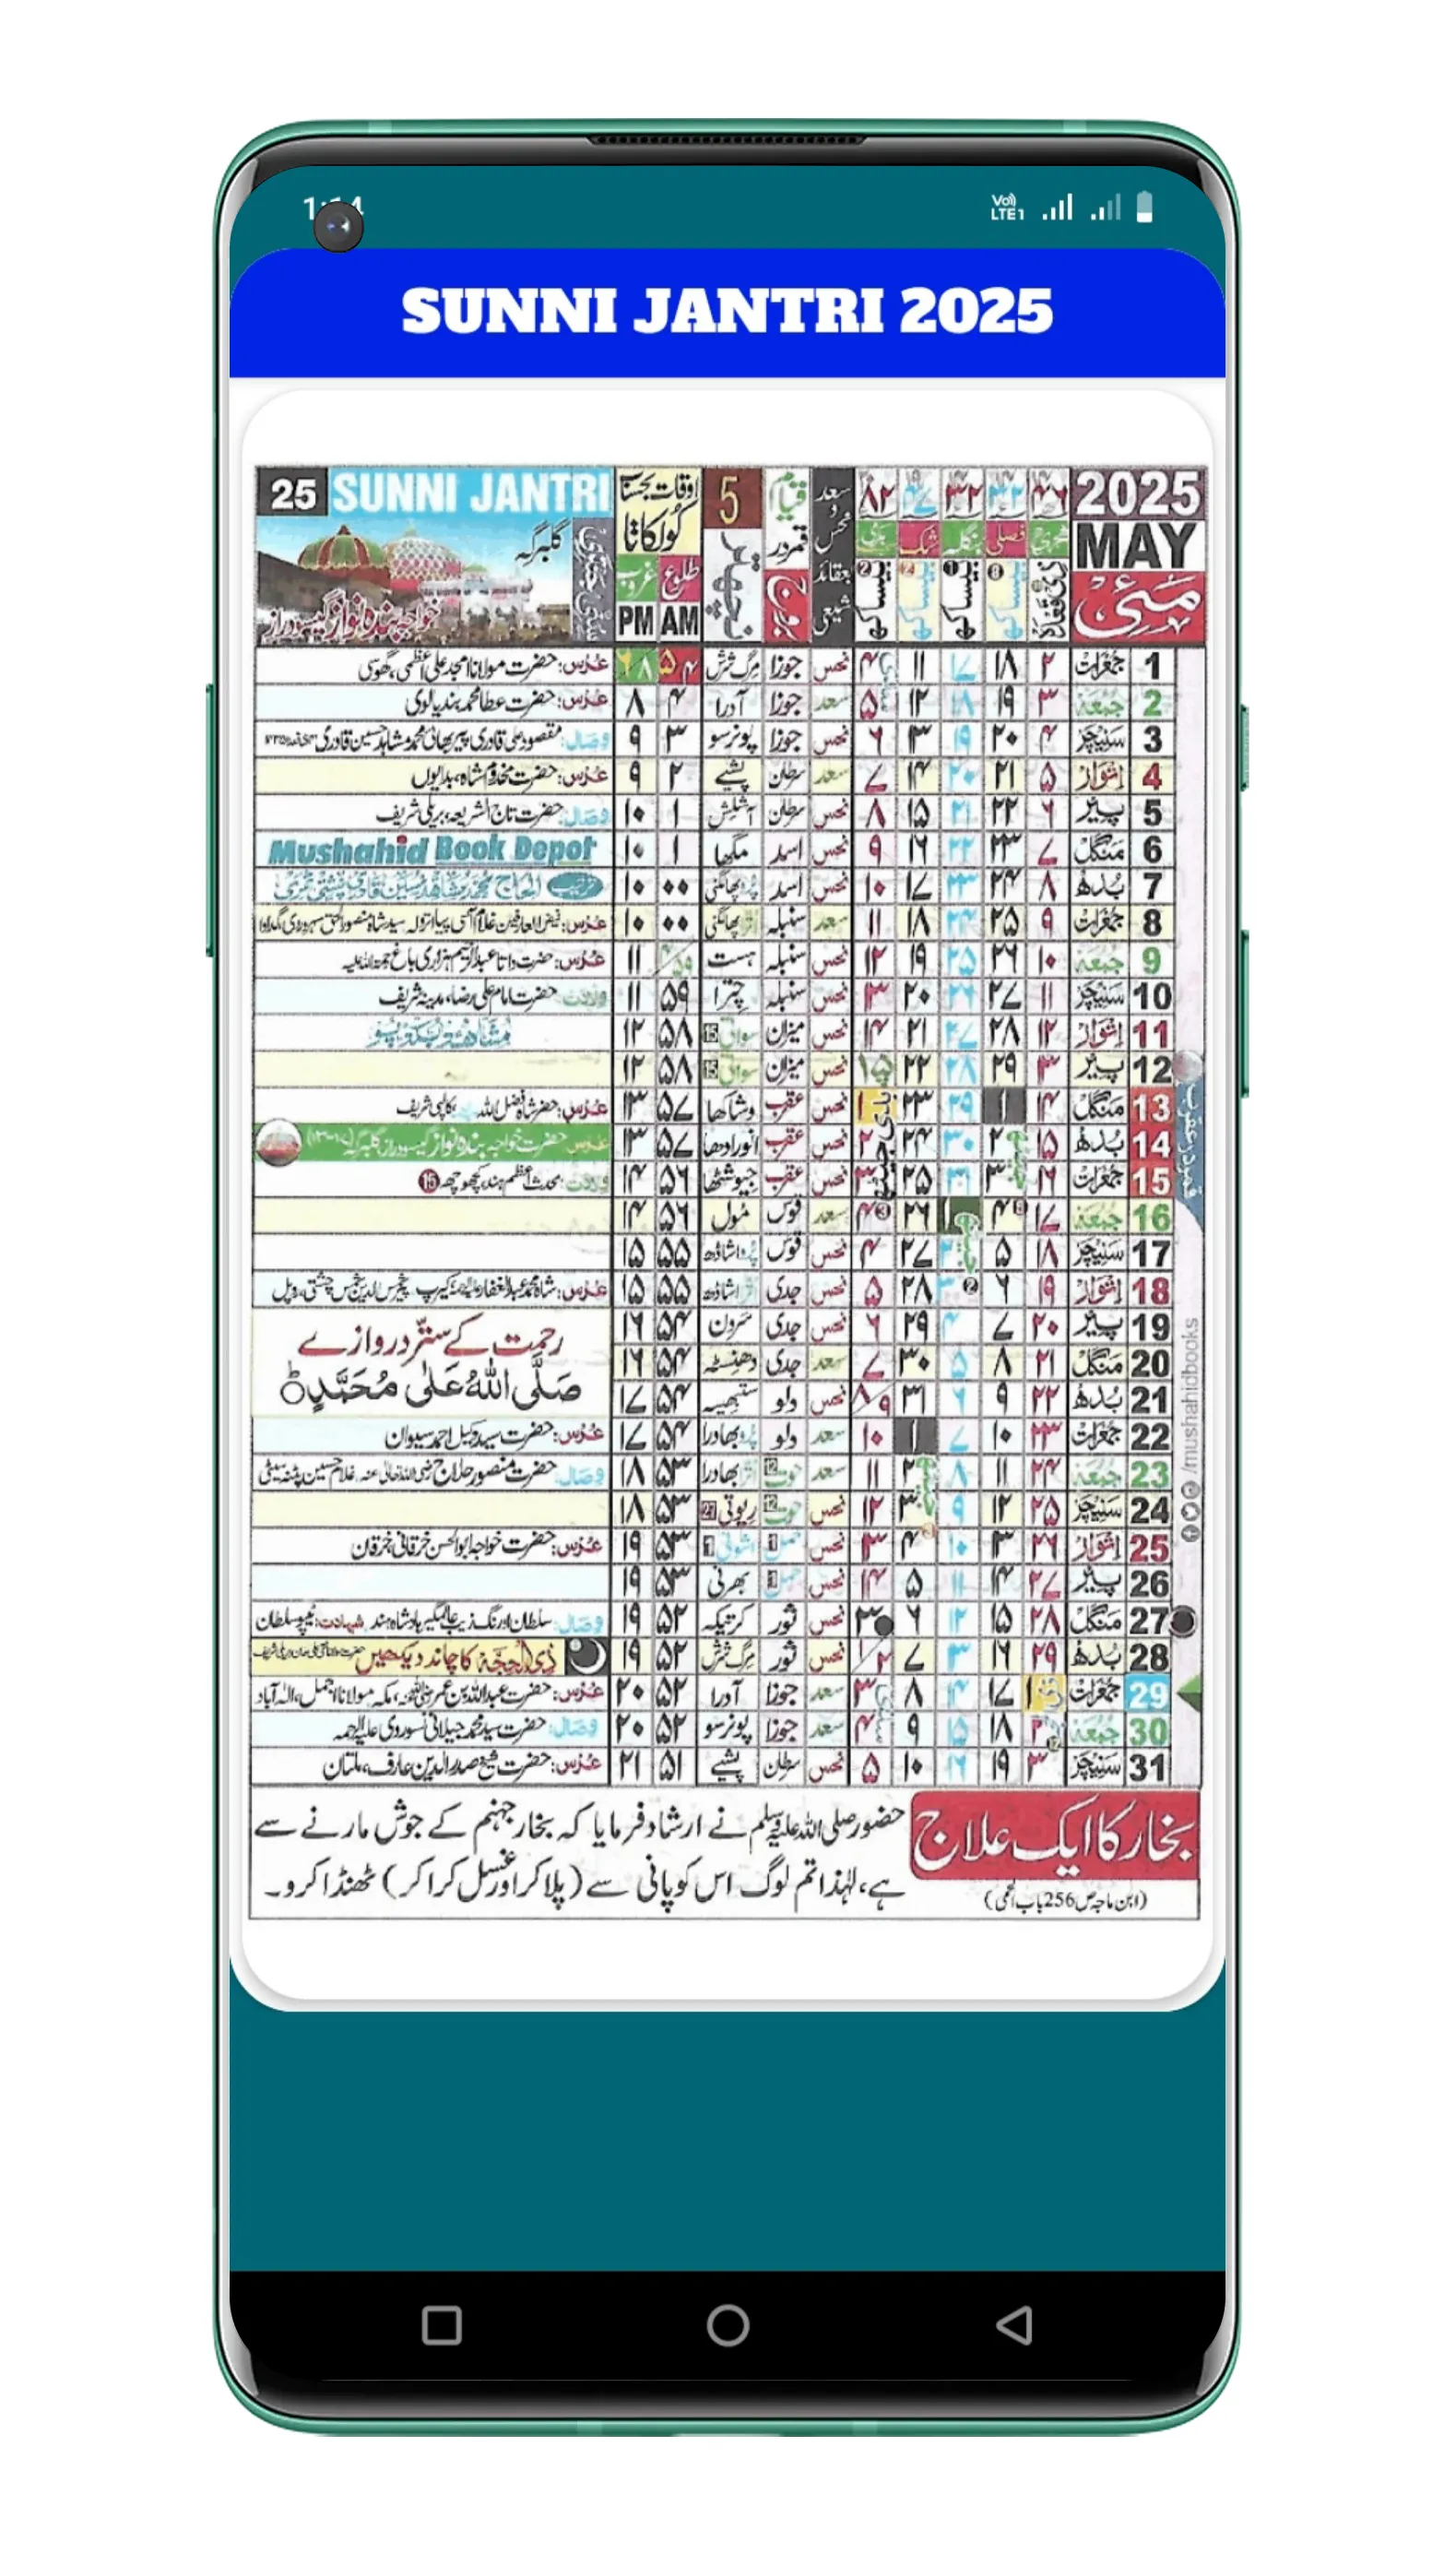 1:14
Vo) LTE1
SUNNI JANTRI 2025
25 SUNNI JANTRI
گلبرگہ
خواجہ بندہ نواز گیسودراز
اوقات بحساب
کولکاتا
غروب طلوع
PM AM
5
نچھتر
قیام
قمر در
بروج
سعد و نحس
بعقائد
شیعی
۸۲ ۴۷ ۳۲ ۳۲ ۴۶
ہجری فصلی بنگلہ شک
2025
MAY
مئی
1 جمعرات ۲ ۱۸ ۱۷ ۱۱ ۴ نحس جوزا مرگ شرش ۵ ۴ ۶ ۸ عُرس: حضرت مولانا امجد علی اعظمی، گھوسی
2 جمعہ ۳ ۱۹ ۱۸ ۱۲ ۵ سعد جوزا آدرا ۴ ۸ عُرس: حضرت عطا محمد بندیالوی
3 سنیچر ۴ ۲۰ ۱۹ ۱۳ ۶ نحس جوزا پونرسو ۳ ۹ وصال:
4 اتوار ۵ ۲۱ ۲۰ ۱۴ ۷ سعد سرطان پشیے ۲ ۹ عُرس: حضرت مخدوم شاہ، بدایوں
5 پیر ۶ ۲۲ ۲۱ ۱۵ ۸ نحس سرطان اشلیش ۱ ۱۰ وصال: حضرت تاج الشریعہ، بریلی شریف
6 منگل ۷ ۲۳ ۲۲ ۱۶ ۹ نحس اسد مگھا ۱ ۱۰ Mushahid Book Depot
7 بدھ ۸ ۲۴ ۲۳ ۱۷ ۱۰ نحس اسد پُروا پھالگنی ۰۰ ۱۰
8 جمعرات ۹ ۲۵ ۲۴ ۱۸ ۱۱ سعد سنبلہ اترا پھالگنی ۰۰ ۱۰ عُرس:
9 جمعہ ۱۰ ۲۶ ۲۵ ۱۹ ۱۲ نحس سنبلہ ہست ۴/۵۹ ۱۱ عُرس:
10 سنیچر ۱۱ ۲۷ ۲۶ ۲۰ ۱۳ نحس سنبلہ چترا ۵۹ ۱۱ ولادت: حضرت امام علی رضا، مدینہ شریف
11 اتوار ۱۲ ۲۸ ۲۷ ۲۱ ۱۴ نحس میزان سواتی 15 ۵۸ ۱۲ مشاہد بکڈپو
12 پیر ۱۳ ۲۹ ۲۸ ۲۲ ۱۵ نحس میزان سواتی 15 ۵۸ ۱۲
13 منگل ۱۴ ۱ ۲۹ ۲۳ ۱ نحس عقرب وشاکھا ۵۷ ۱۳ عُرس: حضرت شاہ فضل اللہ کالپی شریف
14 بدھ ۱۵ ۲ ۳۰ ۲۴ ۲ نحس عقرب انورادھا ۵۷ ۱۳ عرس حضرت خواجہ بندہ نواز گیسودراز گلبرگہ
15 جمعرات ۱۶ ۳ ۳۱ ۲۵ ۳ نحس عقرب جیوشٹھا ۵۶ ۱۴ ولادت: محدث اعظم ہند، کچھوچھہ 15
16 جمعہ ۱۷ ۴ ۱ ۲۶ ۴ سعد قوس مُول ۵۶ ۱۴
17 سنیچر ۱۸ ۵ ۲ ۲۷ ۴ نحس قوس پُروا اشاڈھ ۵۵ ۱۵
18 اتوار ۱۹ ۶ ۳ ۲۸ ۵ نحس جدی اترا اشاڈھ ۵۵ ۱۵ عُرس:
19 پیر ۲۰ ۷ ۴ ۲۹ ۶ نحس جدی سرون ۵۴ ۱۶ رحمت کے ستّر دروازے
20 منگل ۲۱ ۸ ۵ ۳۰ ۷ سعد جدی دھنسٹہ ۵۴ ۱۶ صَلَّی اللہُ عَلٰی مُحَمَّدٍ
21 بدھ ۲۲ ۹ ۶ ۳۱ ۸/۹ نحس دلو ستبھیہ ۵۴ ۱۷
22 جمعرات ۲۳ ۱۰ ۷ ۱ ۱۰ سعد دلو پُروا بھادرا ۵۴ ۱۷ عُرس: حضرت سید وکیل احمد سیوان
23 جمعہ ۲۴ ۱۱ ۸ ۲ ۱۱ سعد حوت 12 اترا بھادرا ۵۳ ۱۸ وصال: حضرت منصور حلاج رضی اللہ تعالیٰ عنہ، غلام حسین پٹنہ سیٹی
24 سنیچر ۲۵ ۱۲ ۹ ۳ ۱۲ نحس حوت 12 ریوتی 27 ۵۳ ۱۸
25 اتوار ۲۶ ۱۳ ۱۰ ۴ ۱۳ نحس حمل 1 اشونی 1 ۵۳ ۱۹ عُرس: حضرت خواجہ ابوالحسن خرقانی خرقان
26 پیر ۲۷ ۱۴ ۱۱ ۵ ۱۴ نحس حمل 1 بھرنی ۵۳ ۱۹
27 منگل ۲۸ ۱۵ ۱۲ ۶ ۳۰ نحس ثور کرتیکہ ۵۲ ۱۹ وصال: سلطان اورنگ زیب عالمگیر بادشاہ ہند شہادت: ٹیپو سلطان
28 بدھ ۲۹ ۱۶ ۱۳ ۷ ۱/۲ نحس ثور مرگ شرش ۵۲ ۱۹ ذی الحجہ کا چاند دیکھیں
29 جمعرات ۱ ۱۷ ۱۴ ۸ ۳ سعد جوزا آدرا ۵۲ ۲۰ عُرس: حضرت عبداللہ بن عمر، مکہ، مولانا اجمل، الہ آباد
30 جمعہ ۲ ۱۸ ۱۵ ۹ ۴ سعد جوزا پونرسو ۵۲ ۲۰ وصال: حضرت سید محمد جیلانی سوروی علیہ الرحمہ
31 سنیچر ۳ ۱۹ ۱۶ ۱۰ ۵ نحس سرطان پشیے ۵۱ ۲۱ عُرس: حضرت شیخ صدر الدین عارف، ملتان
/mushahidbooks
بخار کا ایک علاج
(ابن ماجہ ص256 باب الحمی)
حضور صلی اللہ علیہ وسلم نے ارشاد فرمایا کہ بخار جہنم کے جوش مارنے سے
ہے، لہٰذا تم لوگ اس کو پانی سے (پلا کر اور غسل کرا کر) ٹھنڈا کرو۔